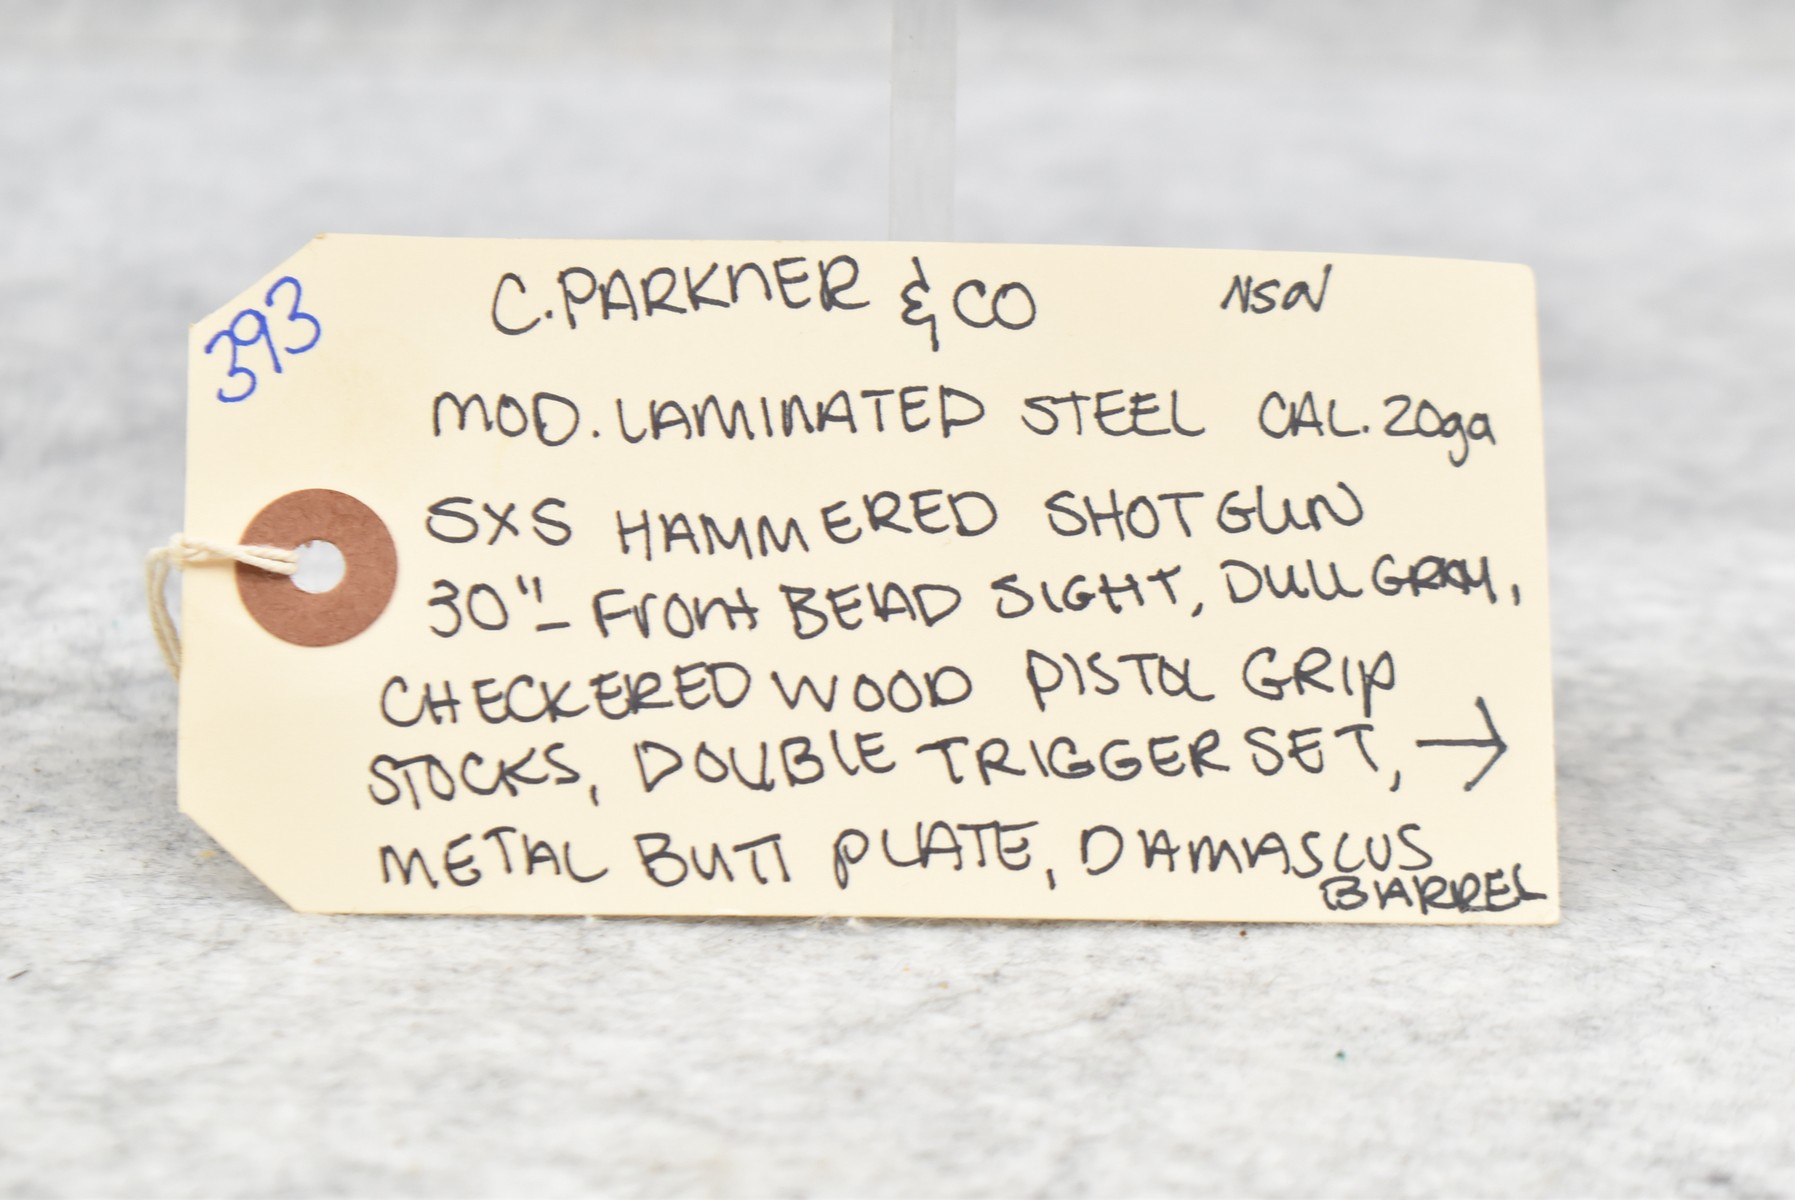 393
C. PARKNER & CO NSN
MOD. LAMINATED STEEL CAL. 20ga
SXS HAMMERED SHOTGUN
30"- Front BEAD SIGHT, DULL GRAY,
CHECKERED WOOD PISTOL GRIP
STOCKS, DOUBLE TRIGGER SET, →
METAL BUTT PLATE, DAMASCUS
BARREL